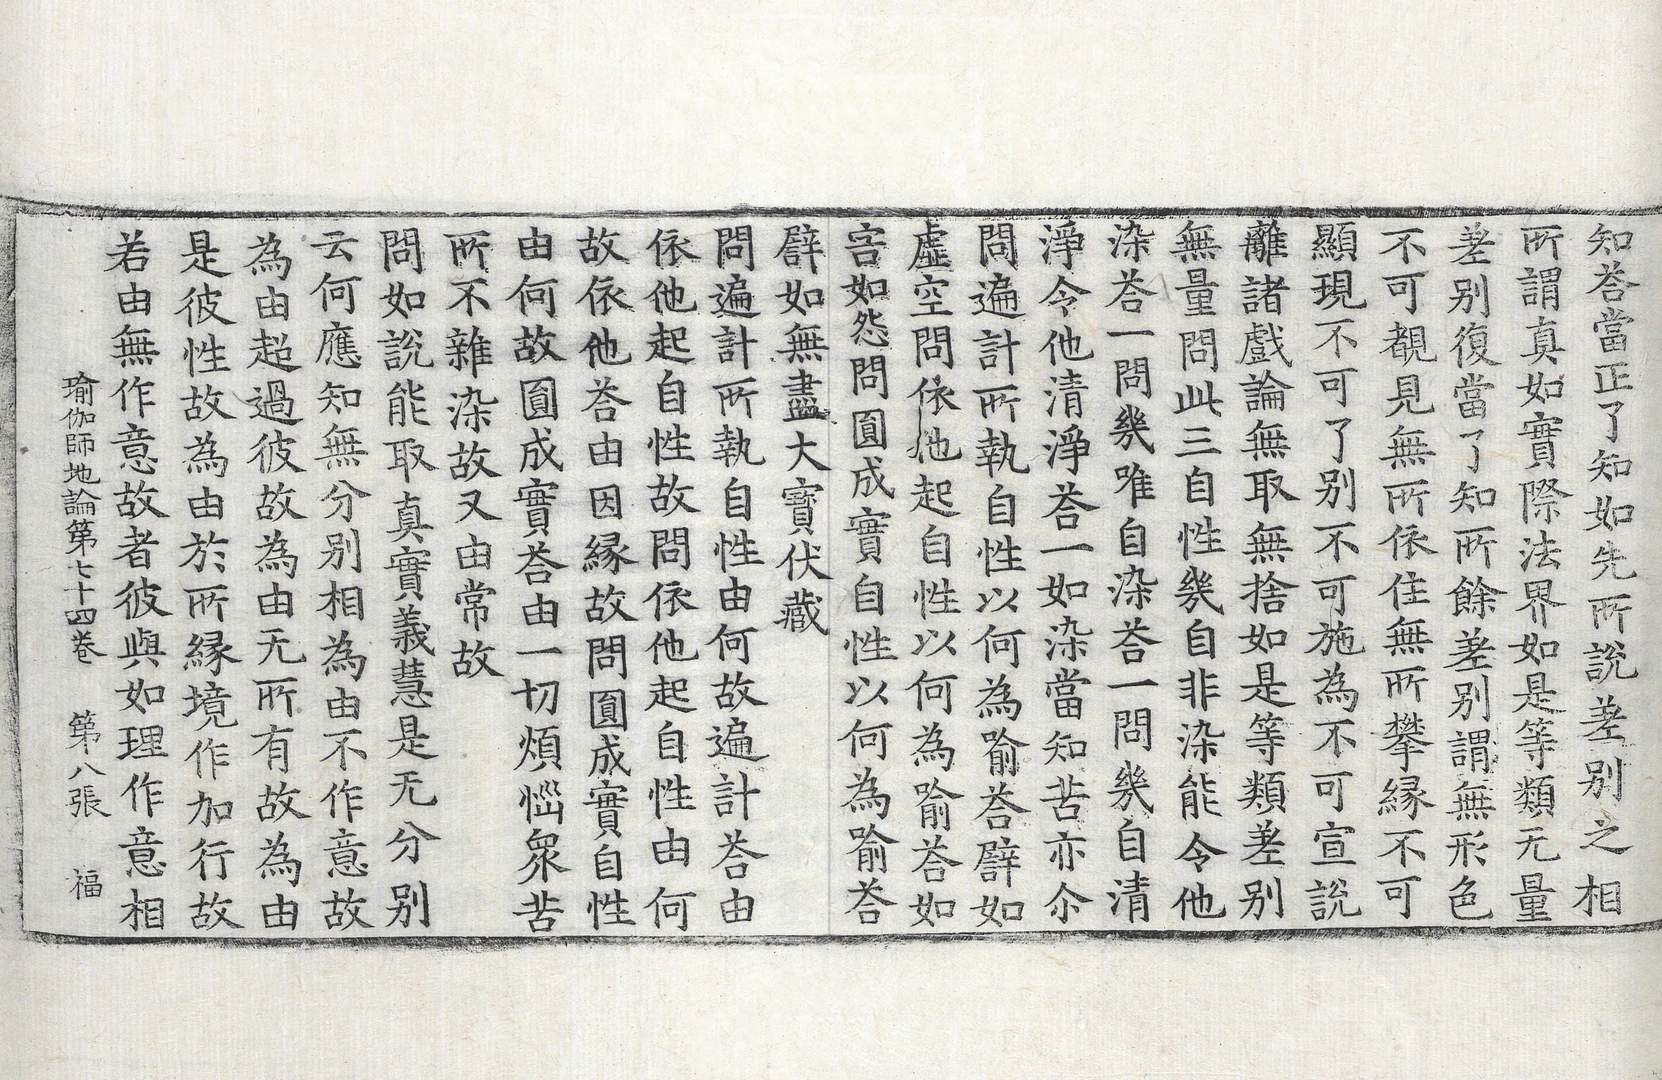 知荅當正了知如先所說差別之相
所謂真如實際法界如是等類无量
差別復當了知所餘差別謂無形色
不可覩見無所依住無所攀緣不可
顯現不可了別不可施為不可宣說
離諸戲論無取無捨如是等類差別
無量問此三自性幾自非染能令他
染荅一問幾唯自染荅一問幾自清
淨令他清淨荅一如染當知苦亦尒
問遍計所執自性以何為喻荅譬如
虛空問依他起自性以何為喻荅如
害如怨問圓成實自性以何為喻荅
譬如無盡大寶伏藏
問遍計所執自性由何故遍計荅由
依他起自性故問依他起自性由何
故依他荅由因緣故問圓成實自性
由何故圓成實荅由一切煩惱眾苦
所不雜染故又由常故
問如說能取真實義慧是无分別
云何應知無分別相為由不作意故
為由超過彼故為由无所有故為由
是彼性故為由於所緣境作加行故
若由無作意故者彼與如理作意相
瑜伽師地論第七十四卷 第八張 福